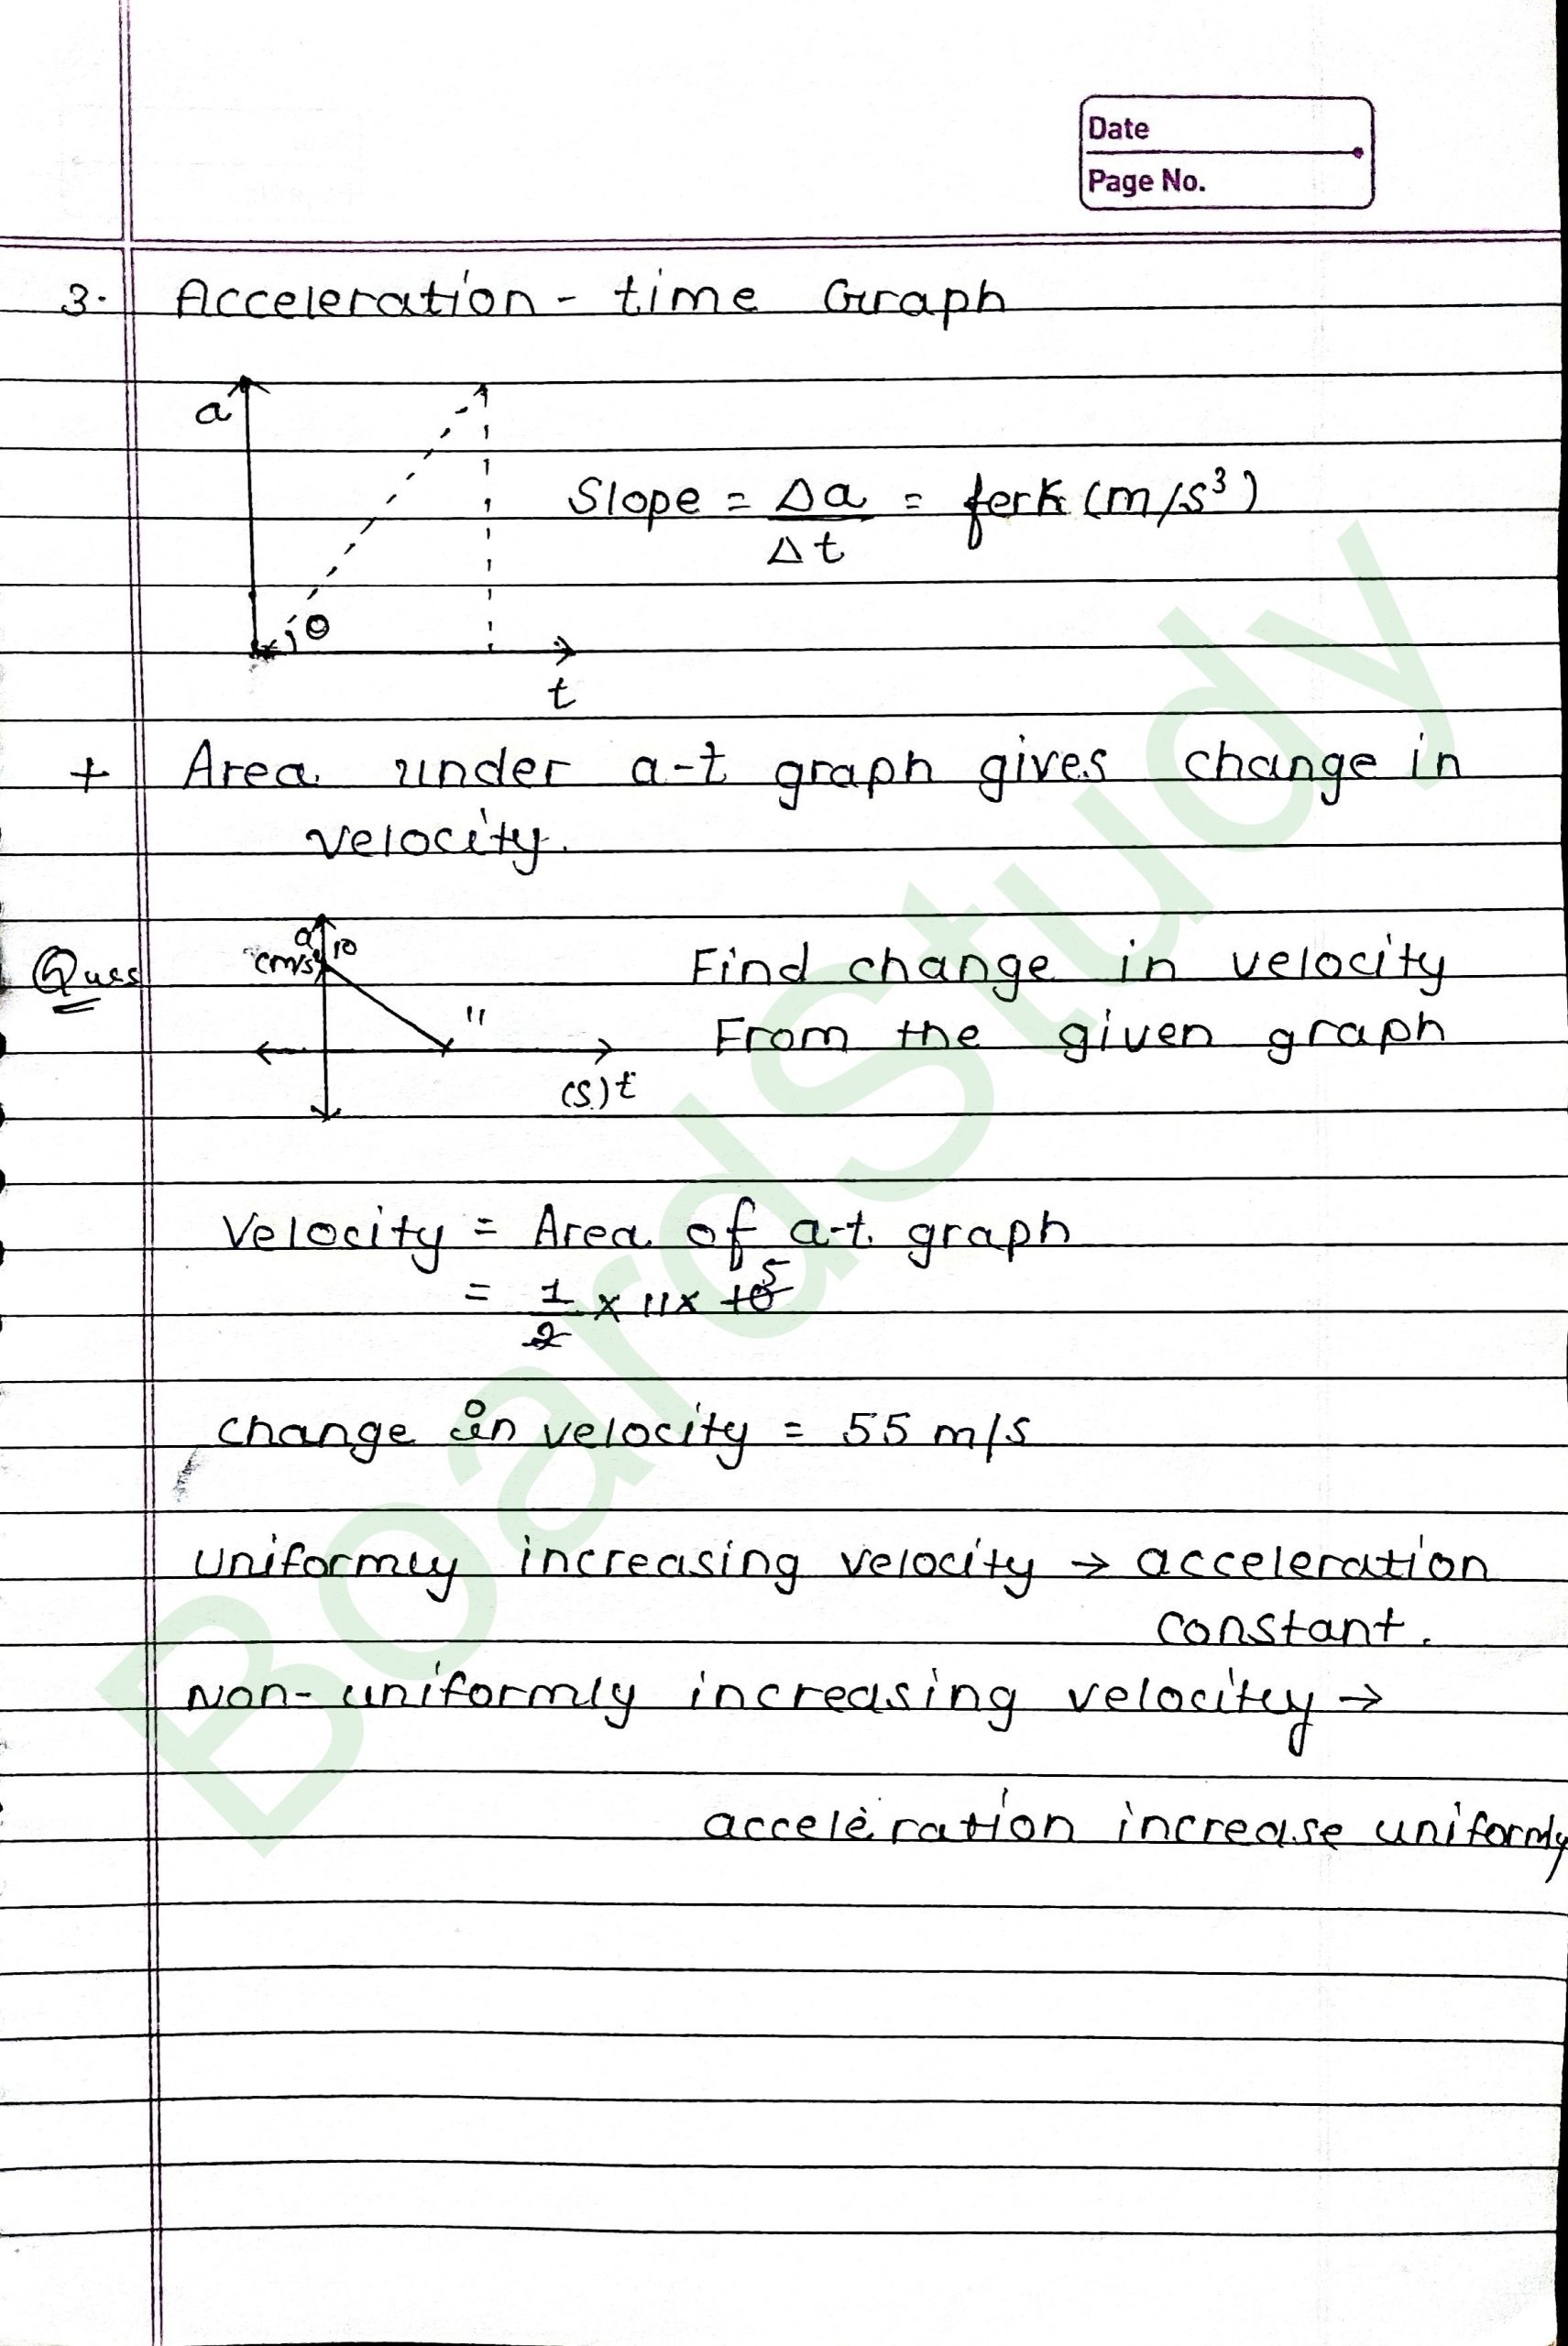 Date
Page No.
3. Acceleration - time Graph
a
Slope = Δa/Δt = ferk (m/s³)
θ
t
+ Area under a-t graph gives change in
velocity.
Ques
a 10
11
(s) t
Find change in velocity
From the given graph
Velocity = Area of a-t graph
= 1/2 x 11 x 10 5
change in velocity = 55 m/s
uniformly increasing velocity → acceleration
constant.
Non-uniformly increasing velocity →
acceleration increase uniformly
BoardStudy